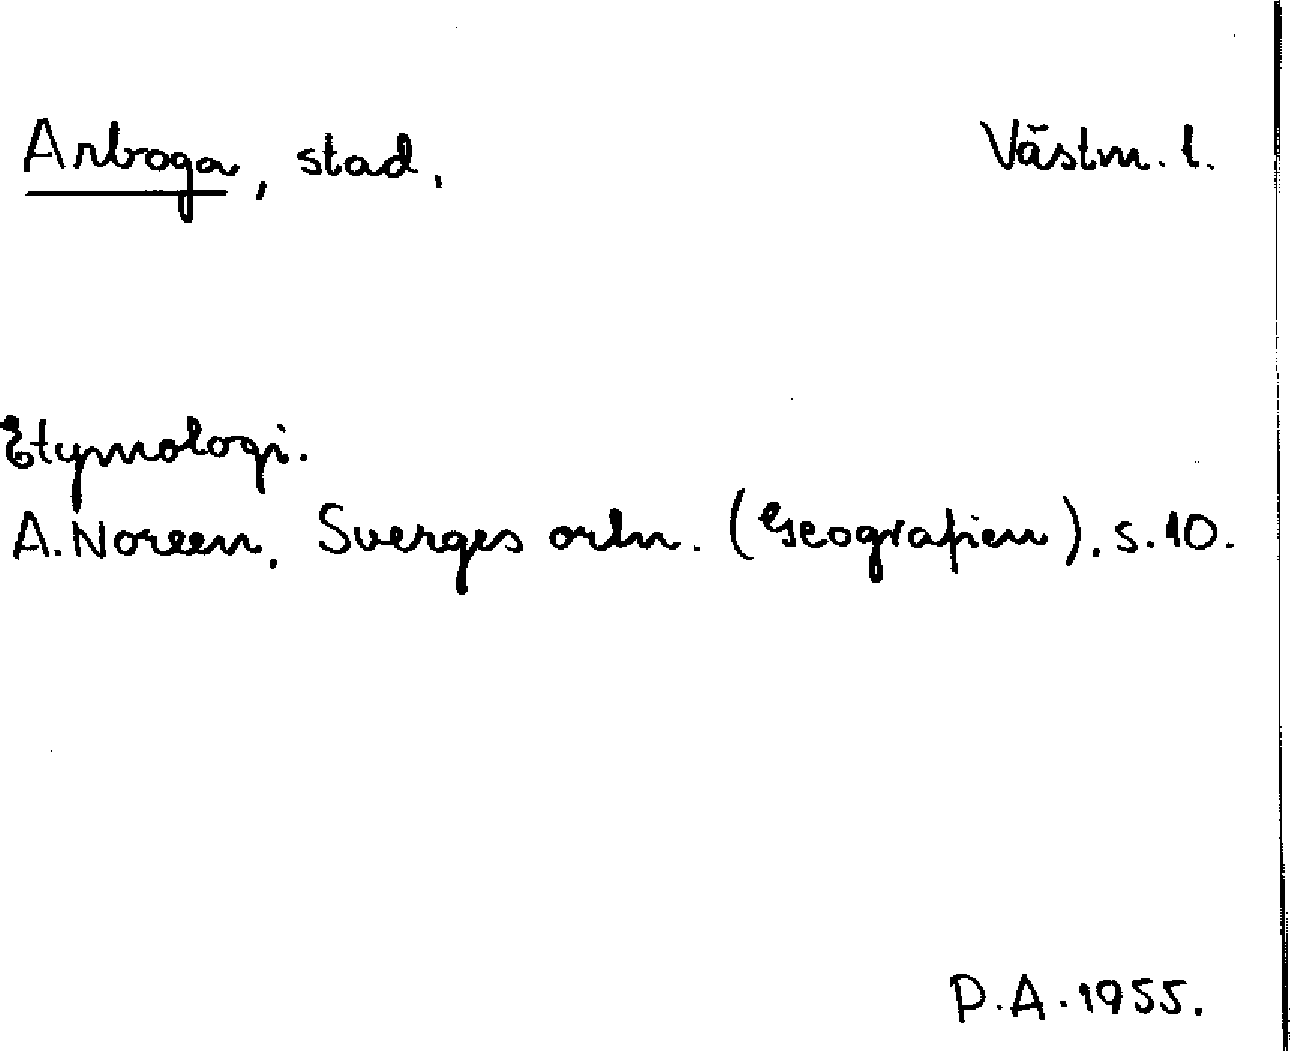 Arboga, stad. Västm. l.
Etymologi.
A. Noreen, Sverges ortn. (Geografien). s. 10.
P.A. 1955.